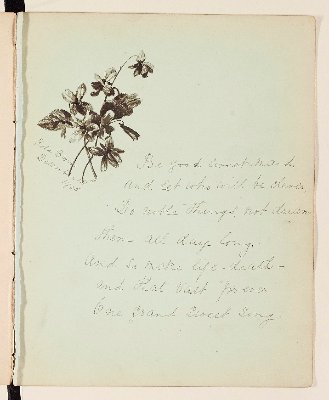 Be good sweet maid
and let who will be clever
Do noble things, not dream
them - all day long.
And so make life - death -
and that vast forever
One grand sweet song.